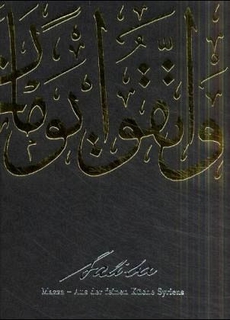 واتقوا يوما
Mazza – Aus der feinen Küche Syriens